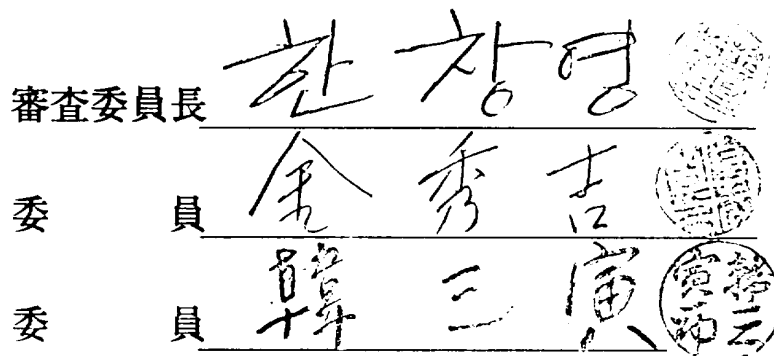 審査委員長 한창영
委員 金秀吉
委員 韓三寅